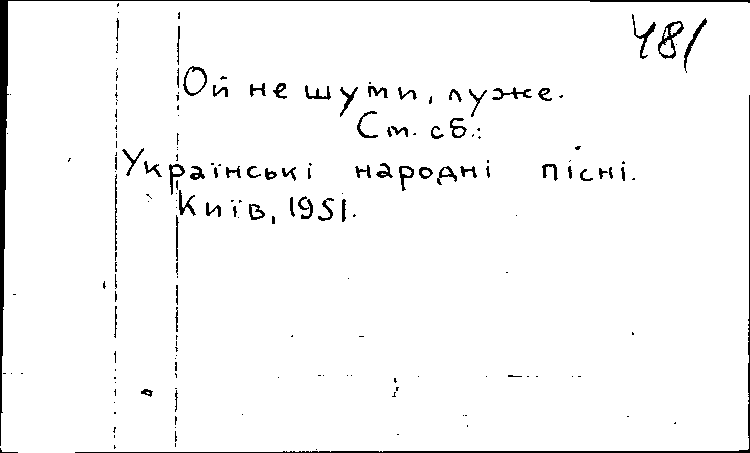 481
Ой не шуми, луже.
См. сб.:
Українські народні пісні.
Київ, 1951.